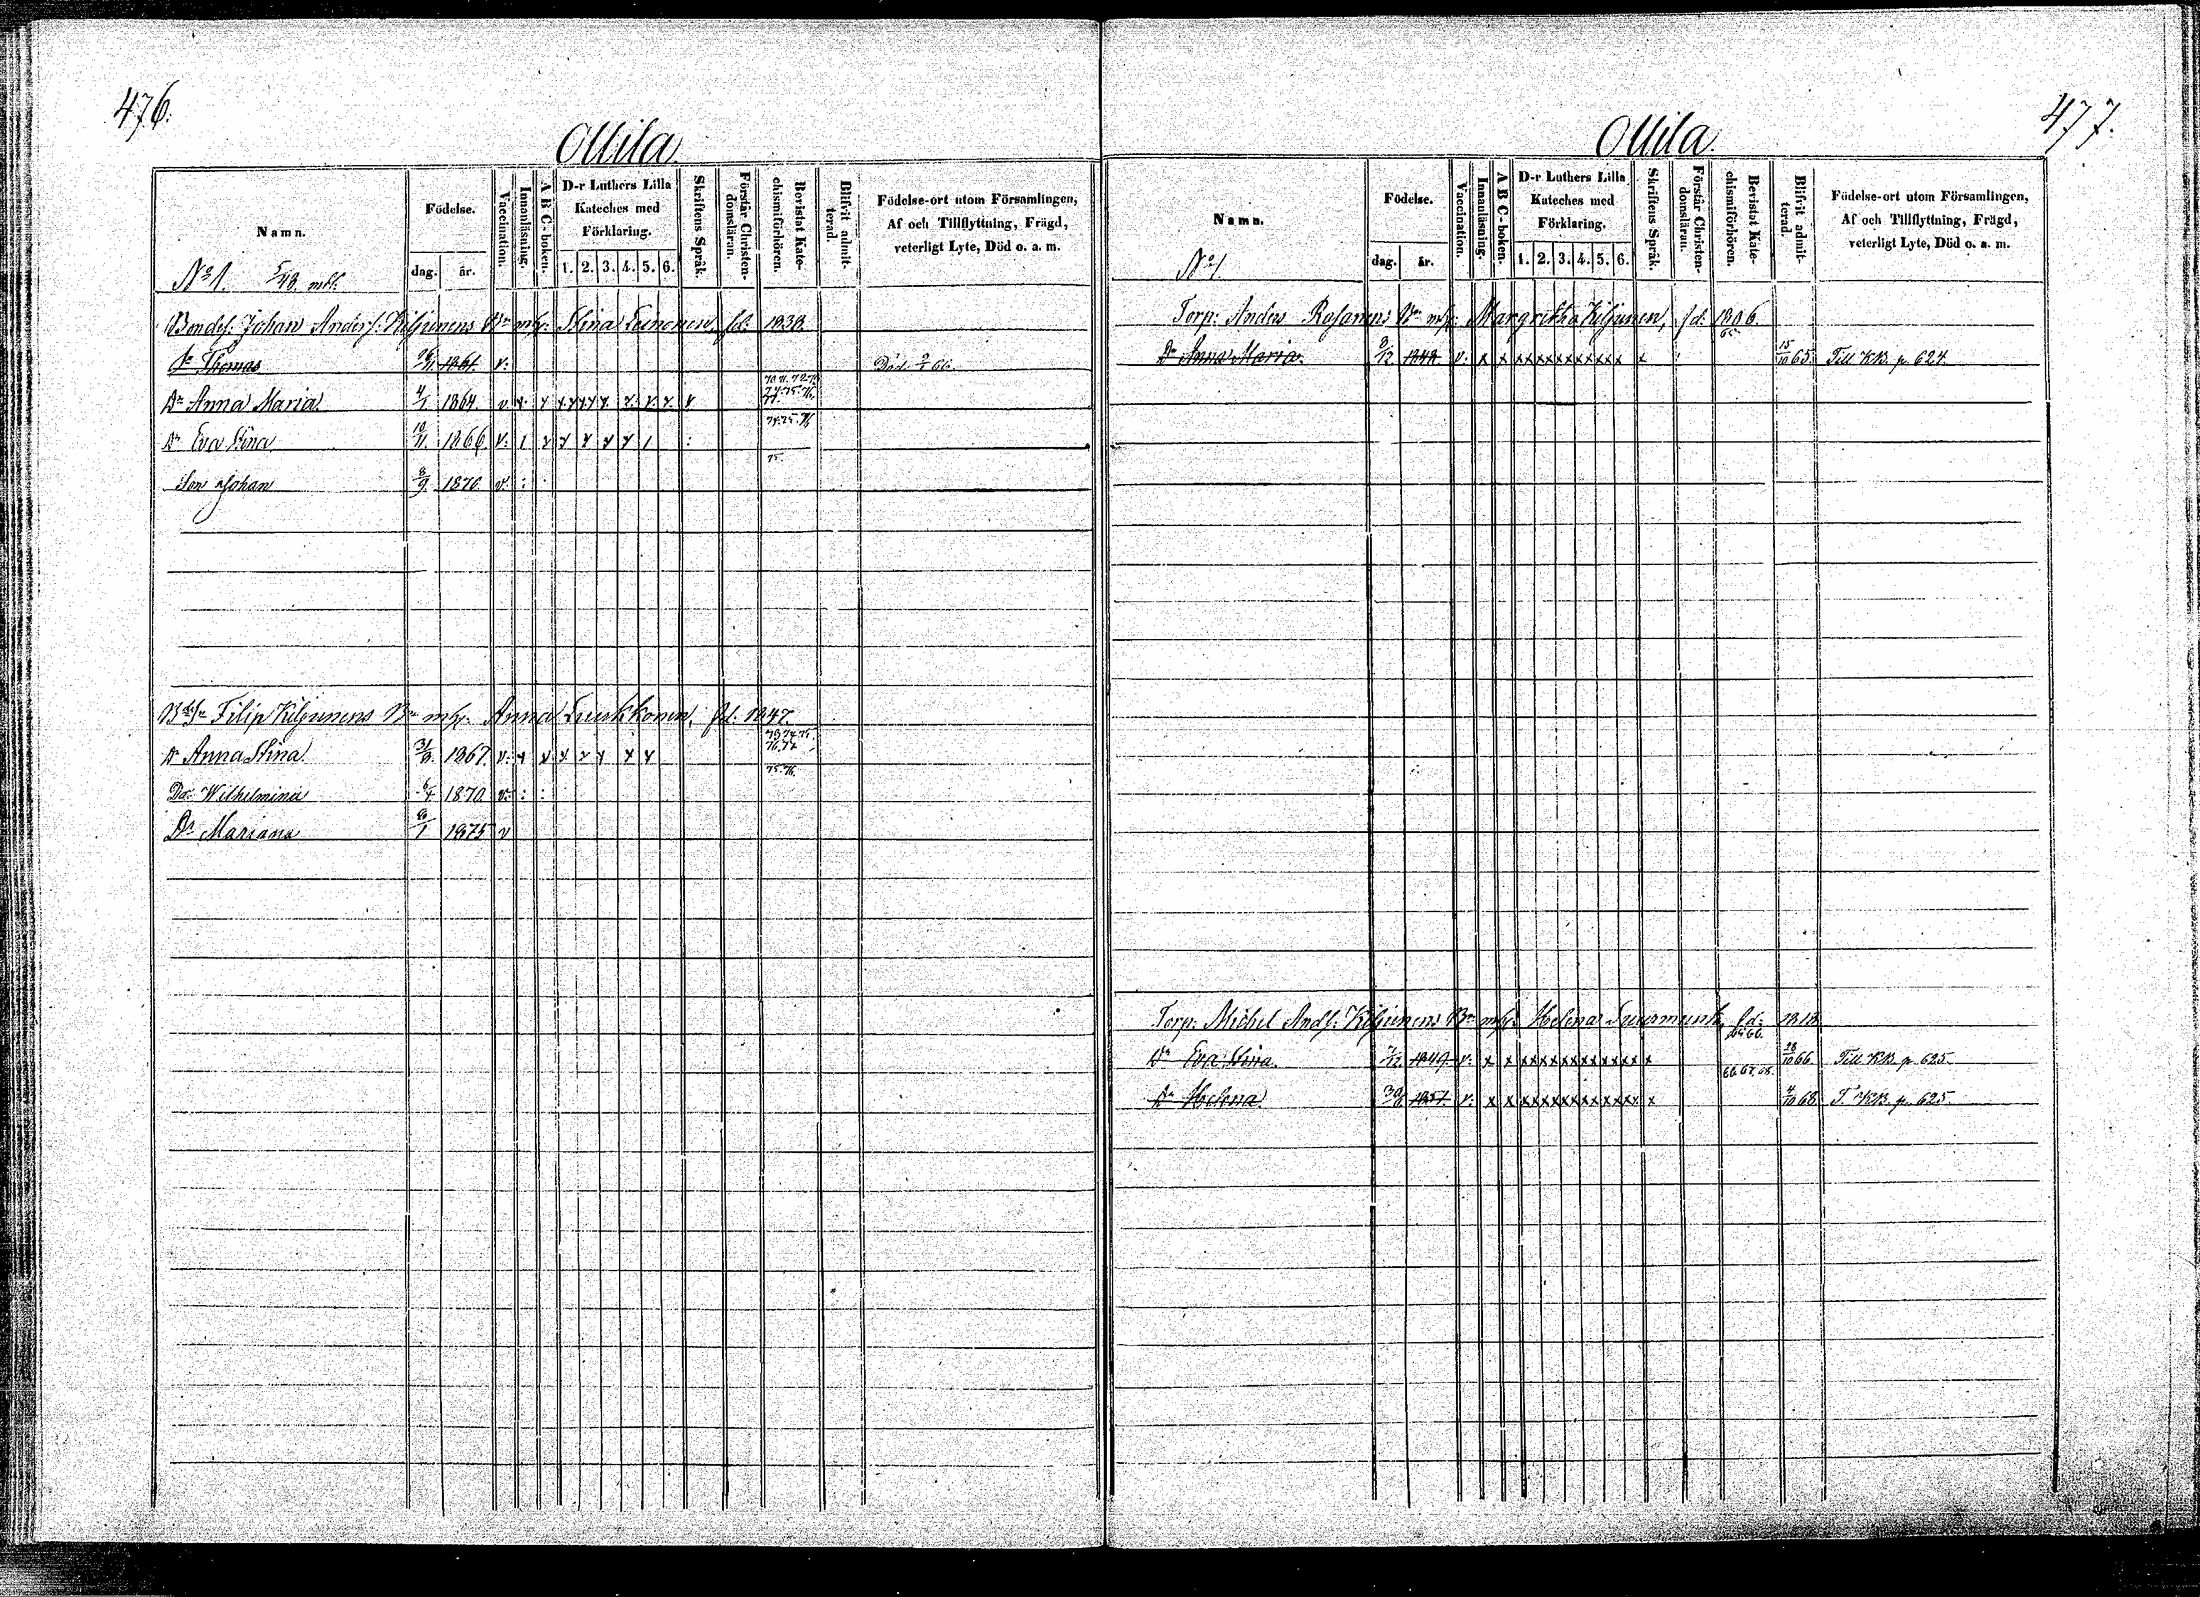 476.
Ollila.
Namn.
Födelse.
dag. år.
Vaccination.
Innanläsning.
A B C-boken.
D-r Luthers Lilla
Kateches med
Förklaring.
1. 2. 3. 4. 5. 6.
Skriftens Språk.
Förstår Christen-
domsläran.
Bevistat Kate-
chismiförhören.
Blifvit admit-
terad.
Födelse-ort utom Församlingen,
Af och Tillflyttning, Frägd,
veterligt Lyte, Död o. a. m.
No 1. 5/48. mtl.
Bondes: Johan Anders: Kiljunens Bn m/h: Stina Leinonen, fd: 1838.
Sn Thomas 1861. v: Död 66.
Dr Anna Maria 4/1 1864. v x x x x x x x x x x 70 71. 72. 73 74. 75. 76. 77.
Dr Eva Stina 10/11. 1866. v: 1 x x x x x 1 : 74. 75. 76
Son Johan 8/9. 1870. v. : 75.
Filip Kiljunens Bn m/h: Anna Luukkonen, fd. 1847.
Dr Anna Stina 31/8. 1867. v: x x x x x x x 73 74 75. 76. 77
Dr. Wilhelmina 1870. v: : : 75. 76.
Dr Mariana 1875 v
477.
Ollila.
Namn.
Födelse.
dag. år.
Vaccination.
Innanläsning.
A B C-boken.
D-r Luthers Lilla
Kateches med
Förklaring.
1. 2. 3. 4. 5. 6.
Skriftens Språk.
Förstår Christen-
domsläran.
Bevistat Kate-
chismiförhören.
Blifvit admit-
terad.
Födelse-ort utom Församlingen,
Af och Tillflyttning, Frägd,
veterligt Lyte, Död o. a. m.
No 1.
Torp: Anders Rosanens Bn m/h: Margretha Kiljunen, fd: 1806.
Dr Anna Maria. 8/12 1848 v: x x xxxxxxxxxxx x 65. 15/10 65. Till KB. p. 624.
Torp: Michel Ands: Kiljunens Bn m/h: Helena Suurmunk, fd: 1818
Dr Eva Stina. 7/12. 1849 v: x x xxxxxxxxxxxx x 65 66. 28/10 66. Till KB. p. 625.
Dr Helena 1851. v: x x xxxxxxxxxxxx x 66. 67. 68. 4/10 68. T. KB. p. 625.